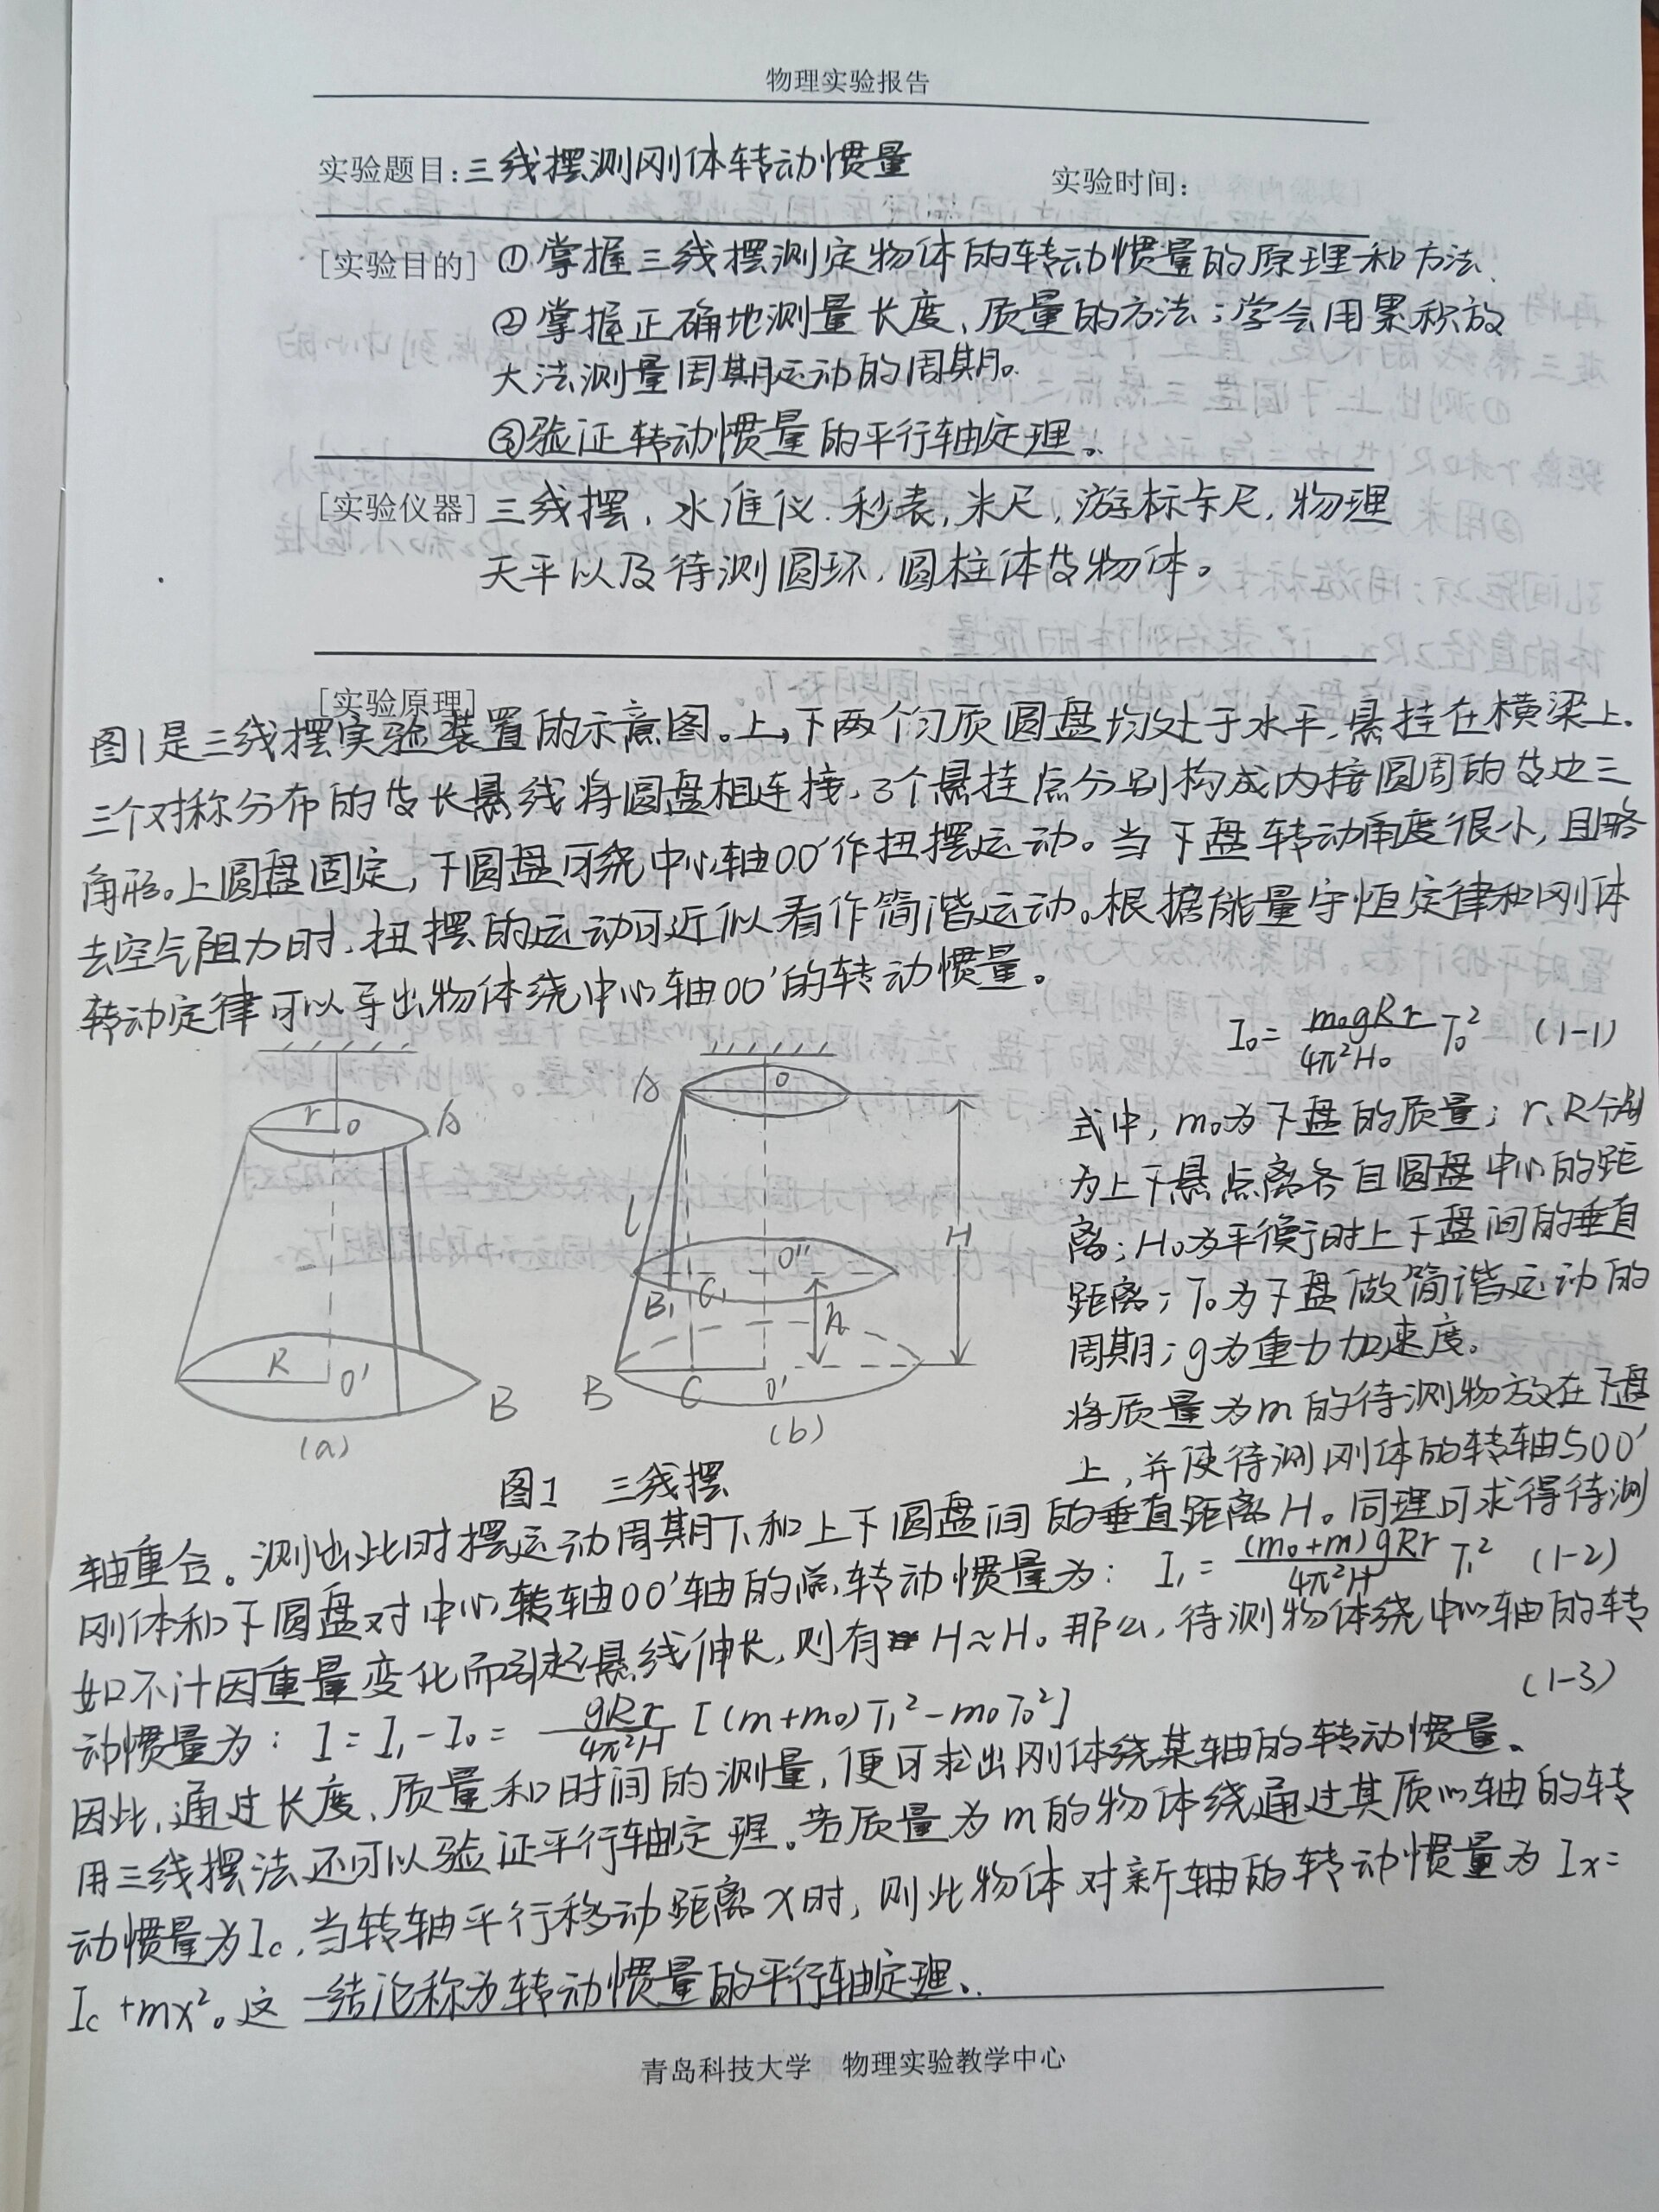 物理实验报告
实验题目:三线摆测刚体转动惯量 实验时间:
[实验目的] ①掌握三线摆测定物体的转动惯量的原理和方法.
②掌握正确地测量长度、质量的方法;学会用累积放
大法测量周期运动的周期。
③验证转动惯量的平行轴定理。
[实验仪器] 三线摆, 水准仪. 秒表, 米尺, 游标卡尺, 物理
天平以及待测圆环, 圆柱体等物体。
[实验原理]
图1是三线摆实验装置的示意图。上,下两个匀质圆盘均处于水平,悬挂在横梁上.
三个对称分布的等长悬线将圆盘相连接,3个悬挂点分别构成内接圆周的等边三
角形。上圆盘固定,下圆盘可绕中心轴OO'作扭摆运动。当下盘转动角度很小,且略
去空气阻力时,扭摆的运动可近似看作简谐运动。根据能量守恒定律和刚体
转动定律可以导出物体绕中心轴OO'的转动惯量。
I₀ = m₀gRr/4π²H₀ T₀² (1-1)
式中, m₀为下盘的质量; r、R分别
为上下悬点离各自圆盘中心的距
离; H₀为平衡时上下盘间的垂直
距离; T₀为下盘做简谐运动的
周期; g为重力加速度。
将质量为m的待测物放在下盘
上,并使待测刚体的转轴与OO'
r O A
R O' B
(a)
A O
l H
O''
B₁ C₁ h
B C O'
(b)
图1 三线摆
轴重合。测出此时摆运动周期T₁和上下圆盘间的垂直距离H。同理可求得待测
刚体和下圆盘对中心转轴OO'轴的总转动惯量为: I₁ = (m₀+m)gRr/4π²H T₁² (1-2)
如不计因重量变化而引起悬线伸长,则有H≈H₀ 那么,待测物体绕中心轴的转
动惯量为: I = I₁ - I₀ = gRr/4π²H [(m+m₀)T₁²-m₀T₀²] (1-3)
因此,通过长度、质量和时间的测量,便可求出刚体绕某轴的转动惯量。
用三线摆法还可以验证平行轴定理。若质量为m的物体绕通过其质心轴的转
动惯量为Ic,当转轴平行移动距离x时,则此物体对新轴的转动惯量为Ix=
Ic+mx²。这一结论称为转动惯量的平行轴定理。
青岛科技大学 物理实验教学中心